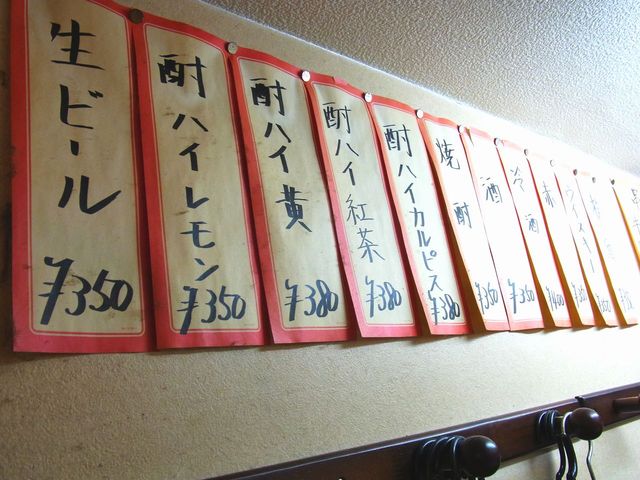 生ビール
¥350
酎ハイレモン
¥350
酎ハイ黄
¥380
酎ハイ紅茶
¥380
酎ハイカルピス
¥380
焼酎
¥350
酒
¥350
冷酒